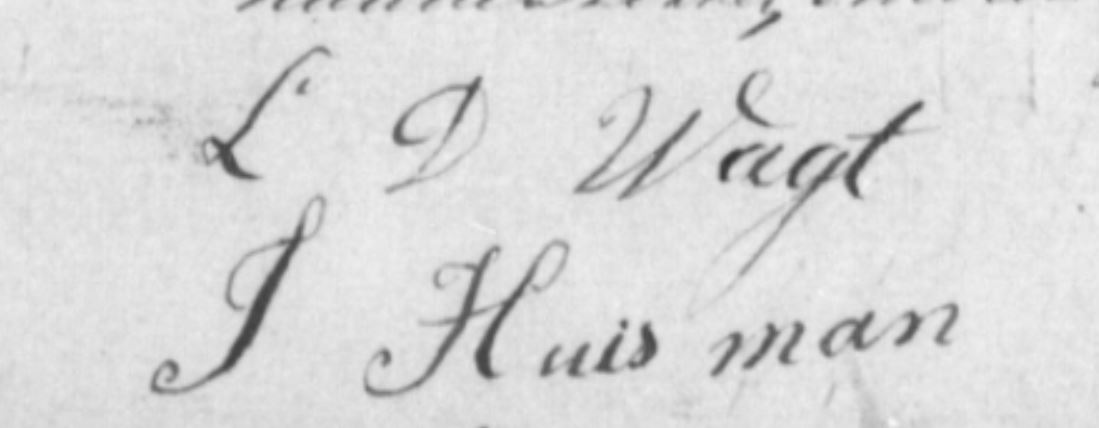 L D Wagt
J Huis man